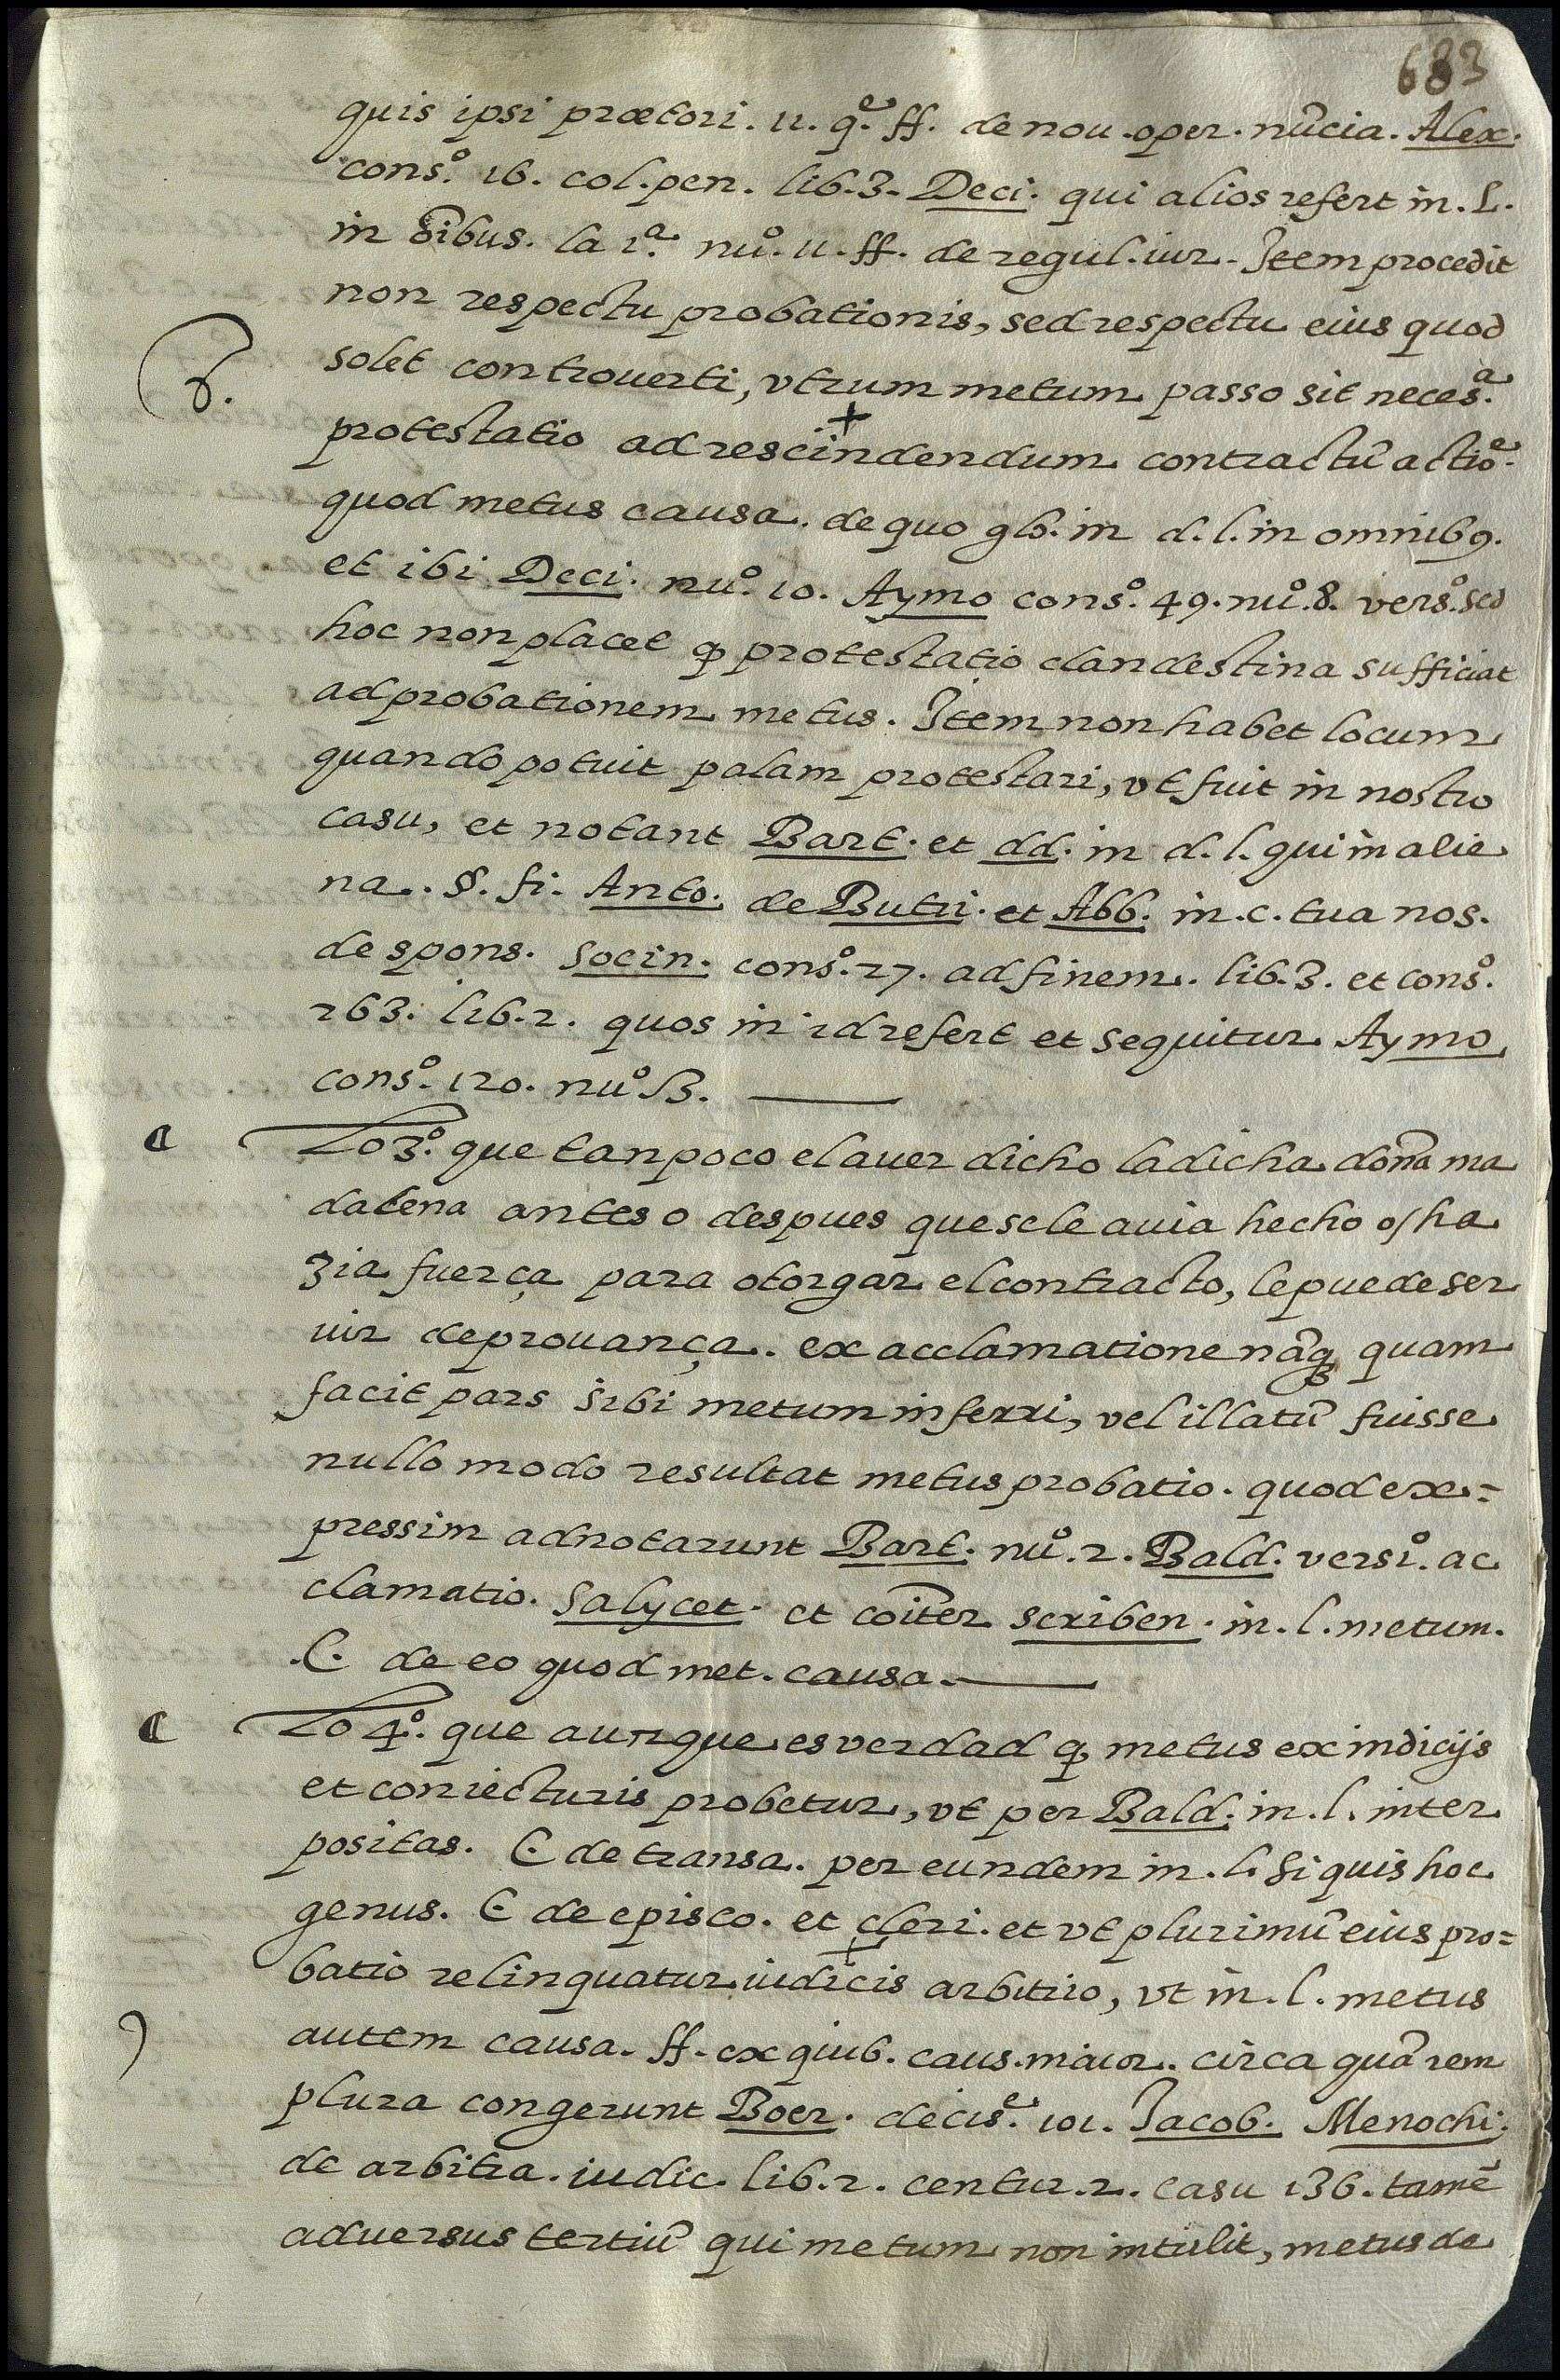 683
quis ipsi prætori. 11. qͤ. ff. de nou. oper. nũcia. Alex.
consº. 16. col. pen. lib. 3. Deci. qui alios refert in. L.
in õibus. la 1ª. nuº. 11. ff. de regul. iur. Item procedit
non respectu probationis, sed respectu eius quod
solet controuerti, vtrum metum passo sit necesª.
6.
protestatio ad rescindendum contractũ actioͤ.
quod metus causa. de quo glo. in d. l. in omnibꝯ.
et ibi Deci. nuº. 10. Aymo consº. 49. nuº. 8. versº. sed
hoc non placet ꝙ protestatio clandestina sufficiat
ad probationem metus. Item non habet locum
quando potuit palam protestari, vt fuit in nostro
casu, et notant Bart. et dd. in d. l. qui in alie
na. §. fi. Anto. de Butri. et Abb. in. c. tua nos.
de spons. Socin. consº. 27. ad finem. lib. 3. et consº.
263. lib. 2. quos in id refert et sequitur Aymo
consº. 120. nuº 13.
Lo 3º. que tanpoco el auer dicho la dicha doña ma
dalena antes o despues que se le auia hecho o/ ha
zia fuerça para otorgar el contracto, le puede ser
uir de prouança. ex acclamatione nãqꝫ quam
facit pars sibi metum inferri, vel illatũ fuisse
nullo modo resultat metus probatio. quod ex=
pressim adnotarunt Bart. nuº. 2. Bald. versiº. ac
clamatio. Salycet. et coĩter scriben. in. l. metum.
C. de eo quod met. causa.
Lo 4º. que aunque es verdad ꝙ metus ex indicijs
et coniecturis probetur, vt per Bald. in. l. inter
positas. C de transa. per eundem in. l. si quis hoc
genus. C de episco. et cleri. et vt plurimũ eius pro=
batio relinquatur iudicis arbitrio, vt in. l. metus
autem causa. ff. ex quib. caus. maior. circa quã rem
plura congerunt Boer. decisͤ. 101. Jacob. Menochi.
de arbitra. iudic. lib. 2. centur. 2. casu 136. tamẽ
aduersus tertiũ qui metum non intulit, metus de